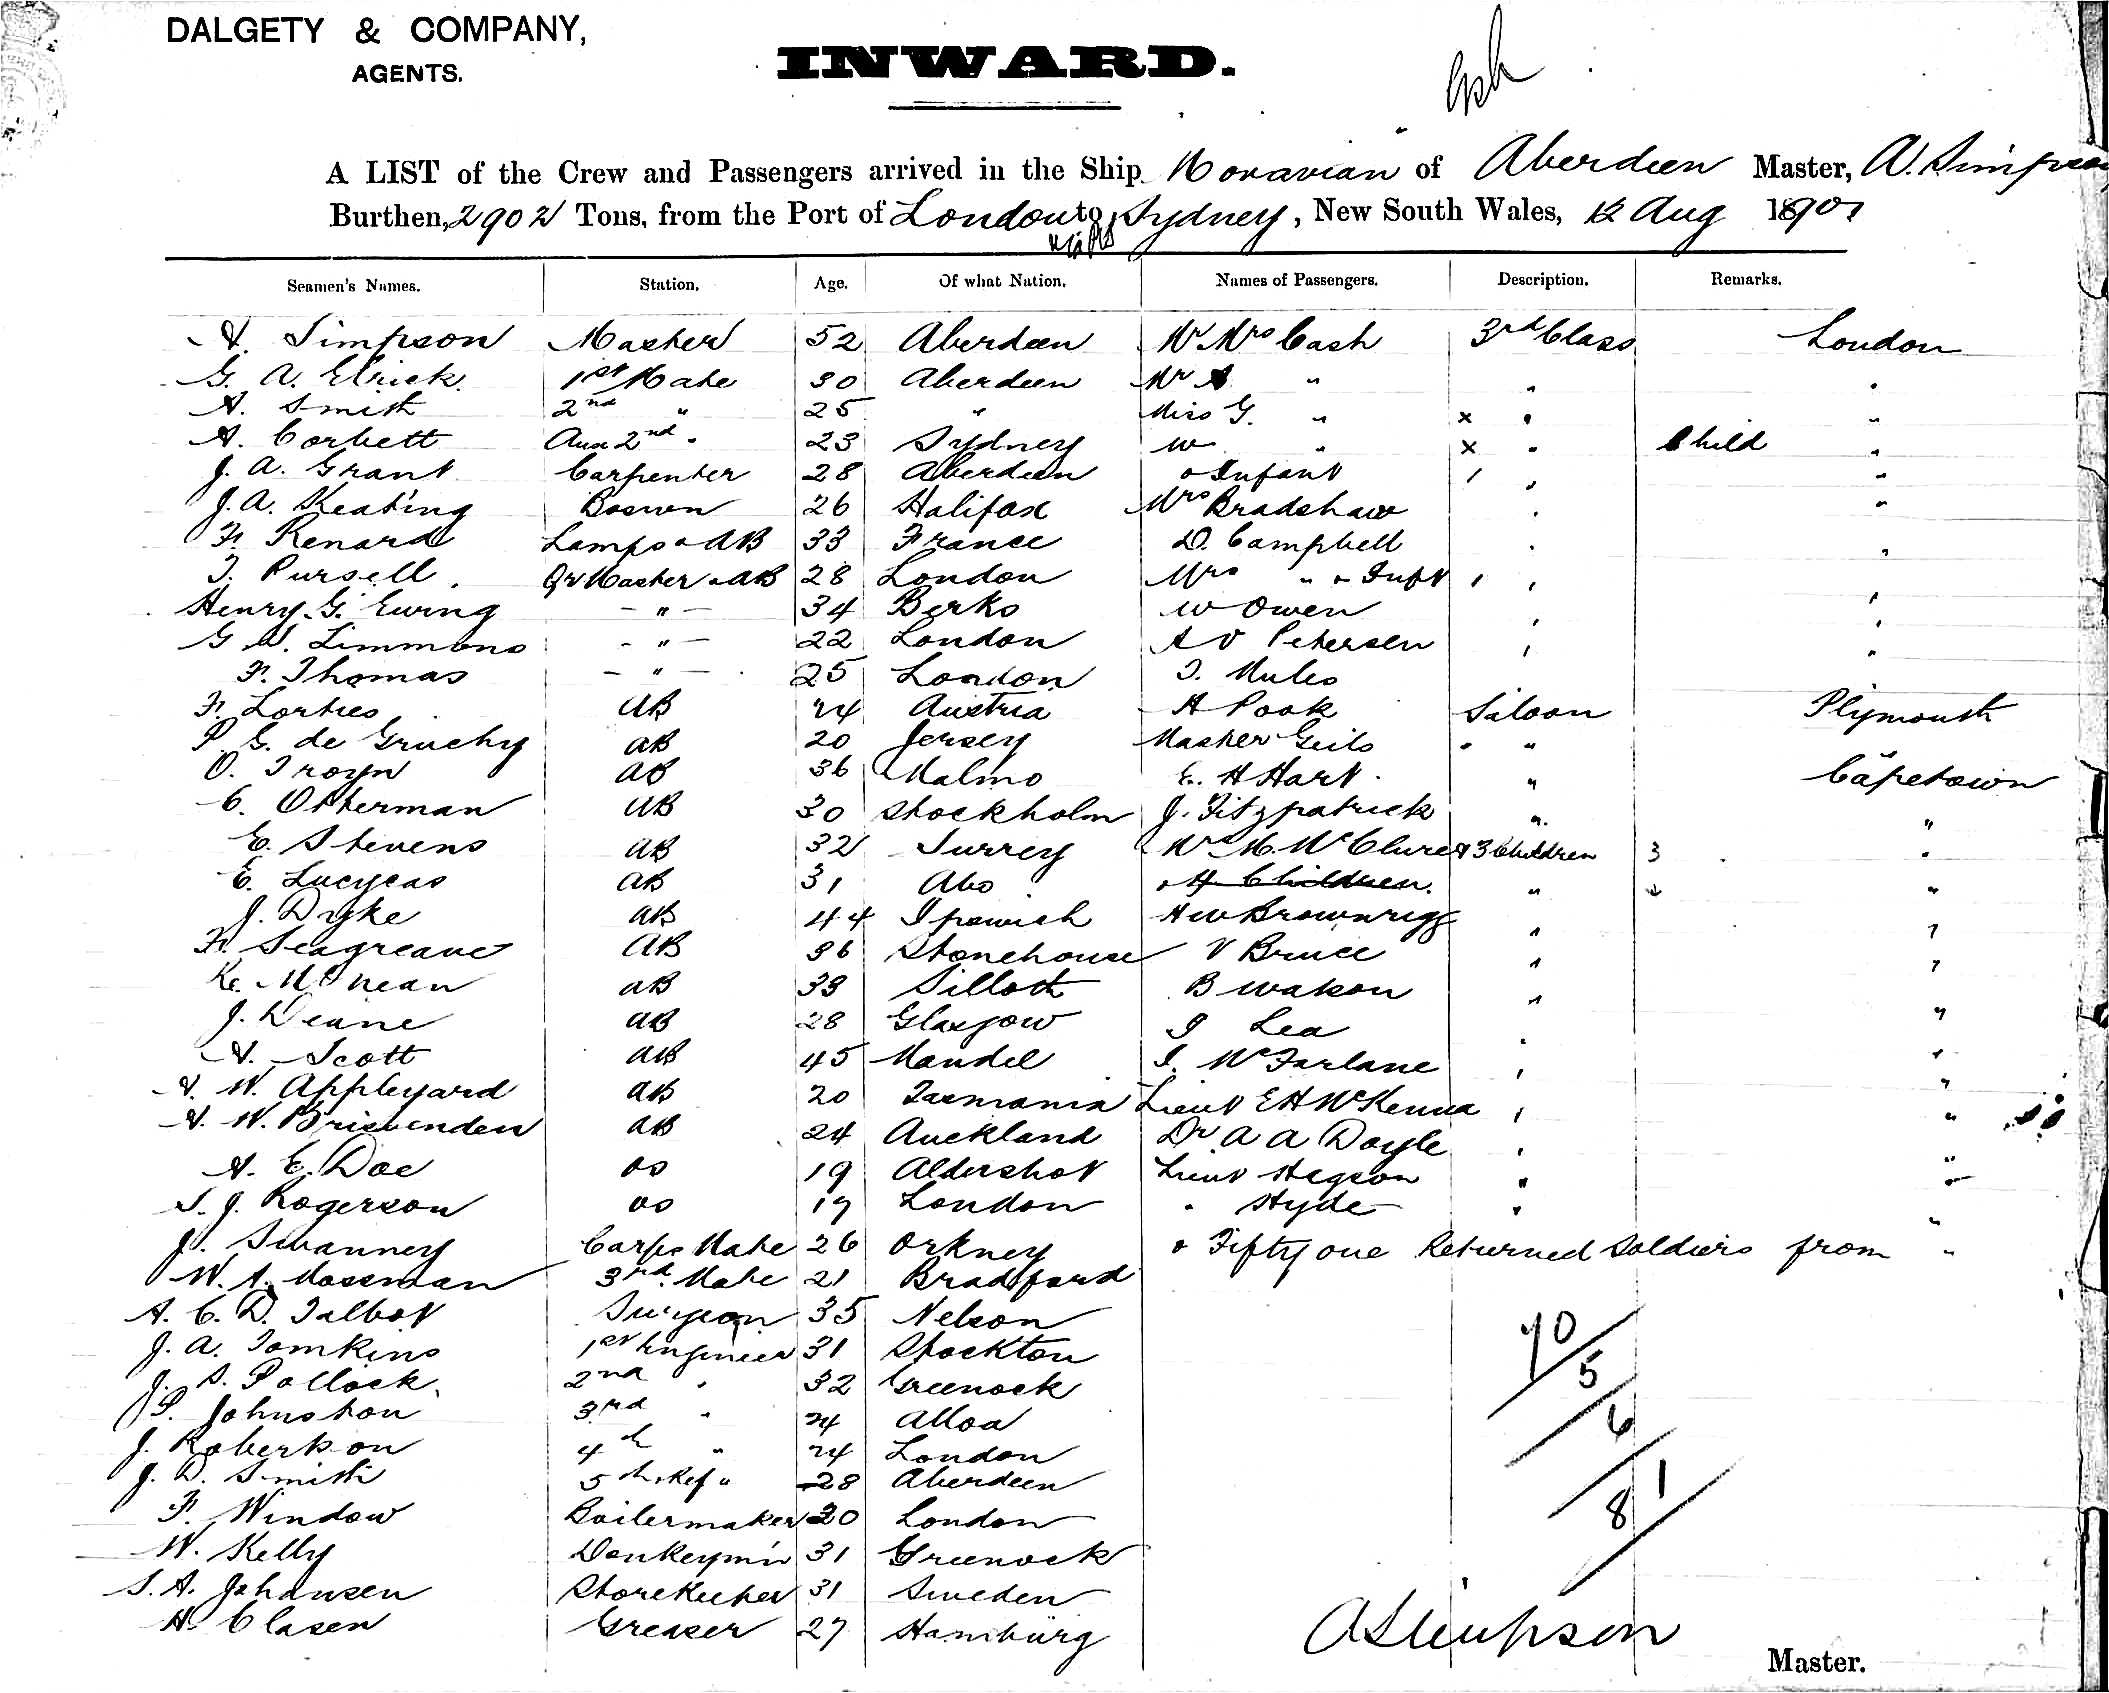 DALGETY & COMPANY,
AGENTS.
INWARD.
A LIST of the Crew and Passengers arrived in the Ship Moravian of Aberdeen Master, A. Simpson
Burthen, 2902 Tons, from the Port of London to Sydney, New South Wales, 12 Aug 1901
Seamen's Names. Station. Age. Of what Nation. Names of Passengers. Description. Remarks.
A. Simpson Master 52 Aberdeen Mr Mrs Cash 3rd Class London
G. A. Elrick 1st Mate 30 Aberdeen Mr A " " "
A. Smith 2nd " 25 " Miss G. " x " "
A. Corbett Aux 2nd " 23 Sydney W " x " Child "
J. A. Grant Carpenter 28 Aberdeen & Infant 1 " "
J. A. Keating Boswn 26 Halifax Mrs Bradshaw " "
F. Renard Lamps & AB 33 France D. Campbell " "
T. Pursell Qr Master & AB 28 London Mrs " & Inft 1 " "
Henry G. Ewing " 34 Berks W Owen " "
G. W. Simmons " 22 London A V Petersen " "
F. Thomas " 25 London T. Mules
F. Lorties AB 24 Austria A Pook Saloon Plymouth
P. G. de Gruchy AB 20 Jersey Master Geils " "
O. Troyn AB 36 Malmo E. H Hart " Capetown
C. Otterman AB 30 Stockholm J. Fitzpatrick " "
E. Stevens AB 32 Surrey Mr M. McClure & 3 Children 3 "
E. Lucyeas AB 31 Abo & 4 Children " "
J. Dyke AB 44 Ipswich H W Brownrigg " "
F. Seagreave AB 36 Stonehouse V Bruce " "
K. McLean AB 33 Silloth B Watson " "
J. Deane AB 28 Glasgow J Lea " "
A. Scott AB 45 Mandel J. McFarlane " "
A. W. Appleyard AB 20 Tasmania Lieut E H McKenna " "
A. W. Brissenden AB 24 Auckland Dr A A Doyle " "
A. E. Doe OS 19 Aldershot Lieut Hegson " "
S. J. Rogerson OS 19 London " Hyde " "
J. Swanney Carps Mate 26 Orkney & Fifty one Returned Soldiers from "
W. A. Mossman 3rd Mate 21 Bradford
A. C. D. Talbot Surgeon 35 Nelson
J. A. Tomkins 1st Engineer 31 Stockton
J. S. Pollock 2nd " 32 Greenock
P. Johnston 3rd " 24 Alloa
J. Robertson 4th " 24 London
J. D. Smith 5th & Ref " 28 Aberdeen
F. Window Boilermaker 20 London
W. Kelly Donkeymn 31 Greenock
S. A. Johansen Storekeeper 31 Sweden
H. Clasen Greaser 27 Hamburg
70/5/6/1
8
A Simpson
Master.